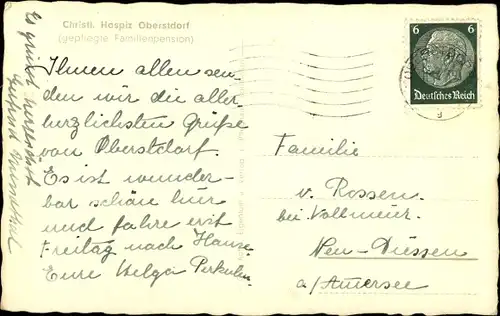 Christl. Hospiz Oberstdorf
(gepflegte Familienpension)
Ihnen allen sen-
den wir die aller-
herzlichsten Grüße
von Oberstdorf.
Es ist wunder-
bar schön hier
und fahre erst
Freitag nach Hause.
Eure Helga
Es grüßt
6 6
Deutsches Reich
Familie
v. Rossen
bei Vollmeur.
Neu-Diessen
a/Amersee